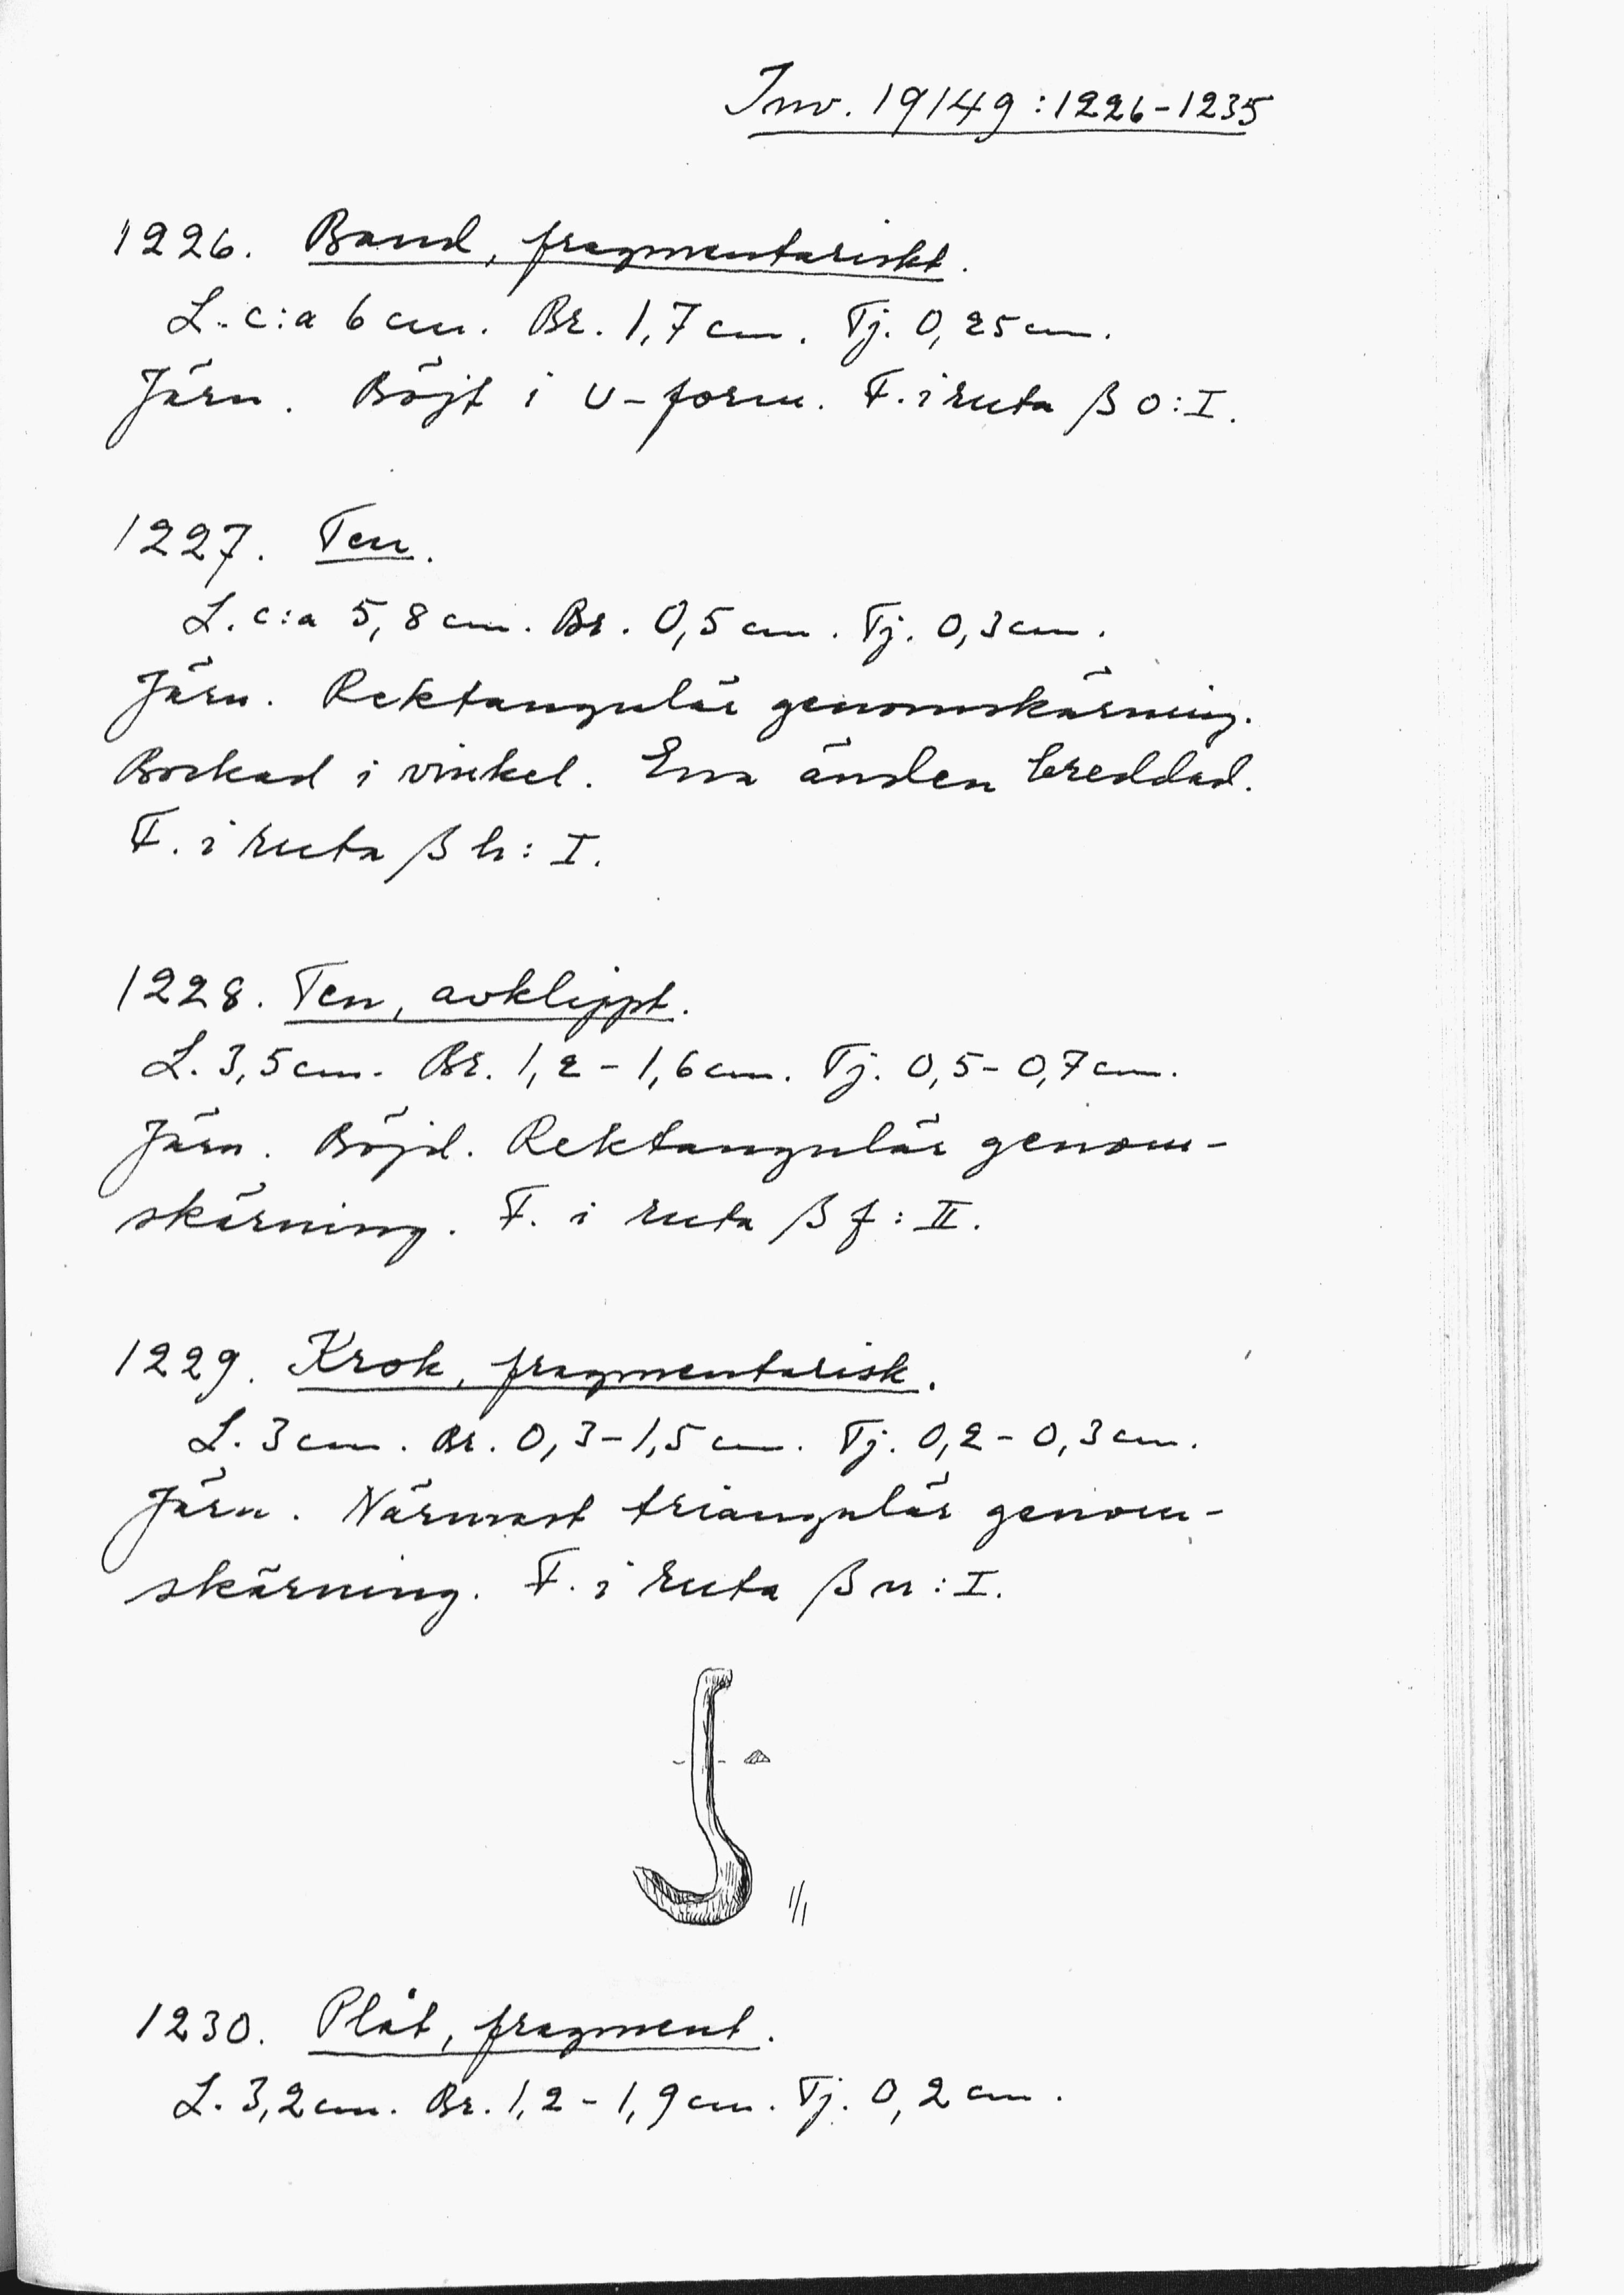 Inv. 19149:1226-1235
1226. Band, fragmentariskt.
L. c:a 6 cm. Br. 1,7 cm. Tj. 0,25 cm.
Järn. Böjt i U-form. F. i ruta β o:I.
1227. Ten.
L. c:a 5,8 cm. Br. 0,5 cm. Tj. 0,3 cm.
Järn. Rektangulär genomskärning.
Bockad i vinkel. Ena änden breddad.
F. i ruta β h: I.
1228. Ten, avklippt.
L. 3,5 cm. Br. 1,2-1,6 cm. Tj. 0,5-0,7 cm.
Järn. Böjd. Rektangulär genom-
skärning. F. i ruta β f: II.
1229. Krok, fragmentarisk.
L. 3 cm. Br. 0,3-1,5 cm. Tj. 0,2-0,3 cm.
Järn. Närmast triangulär genom-
skärning. F. i ruta β n: I.
1/1
1230. Plåt, fragment.
L. 3,2 cm. Br. 1,2-1,9 cm. Tj. 0,2 cm.